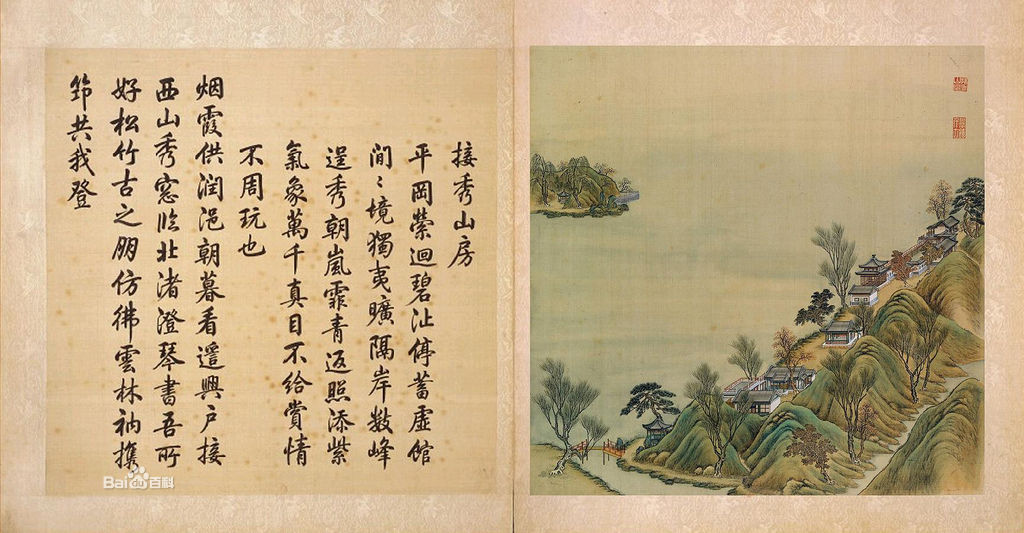 接秀山房
平岡縈迴碧沚停蓄虛館
閒〻境獨夷曠隔岸數峰
逞秀朝嵐霏青返照添紫
氣象萬千真目不給賞情
不周玩也
烟霞供潤浥朝暮看遥興户接
西山秀窓临北渚澄琴書吾所
好松竹古之朋仿彿雲林衲携
笻共我登
Baidu百科